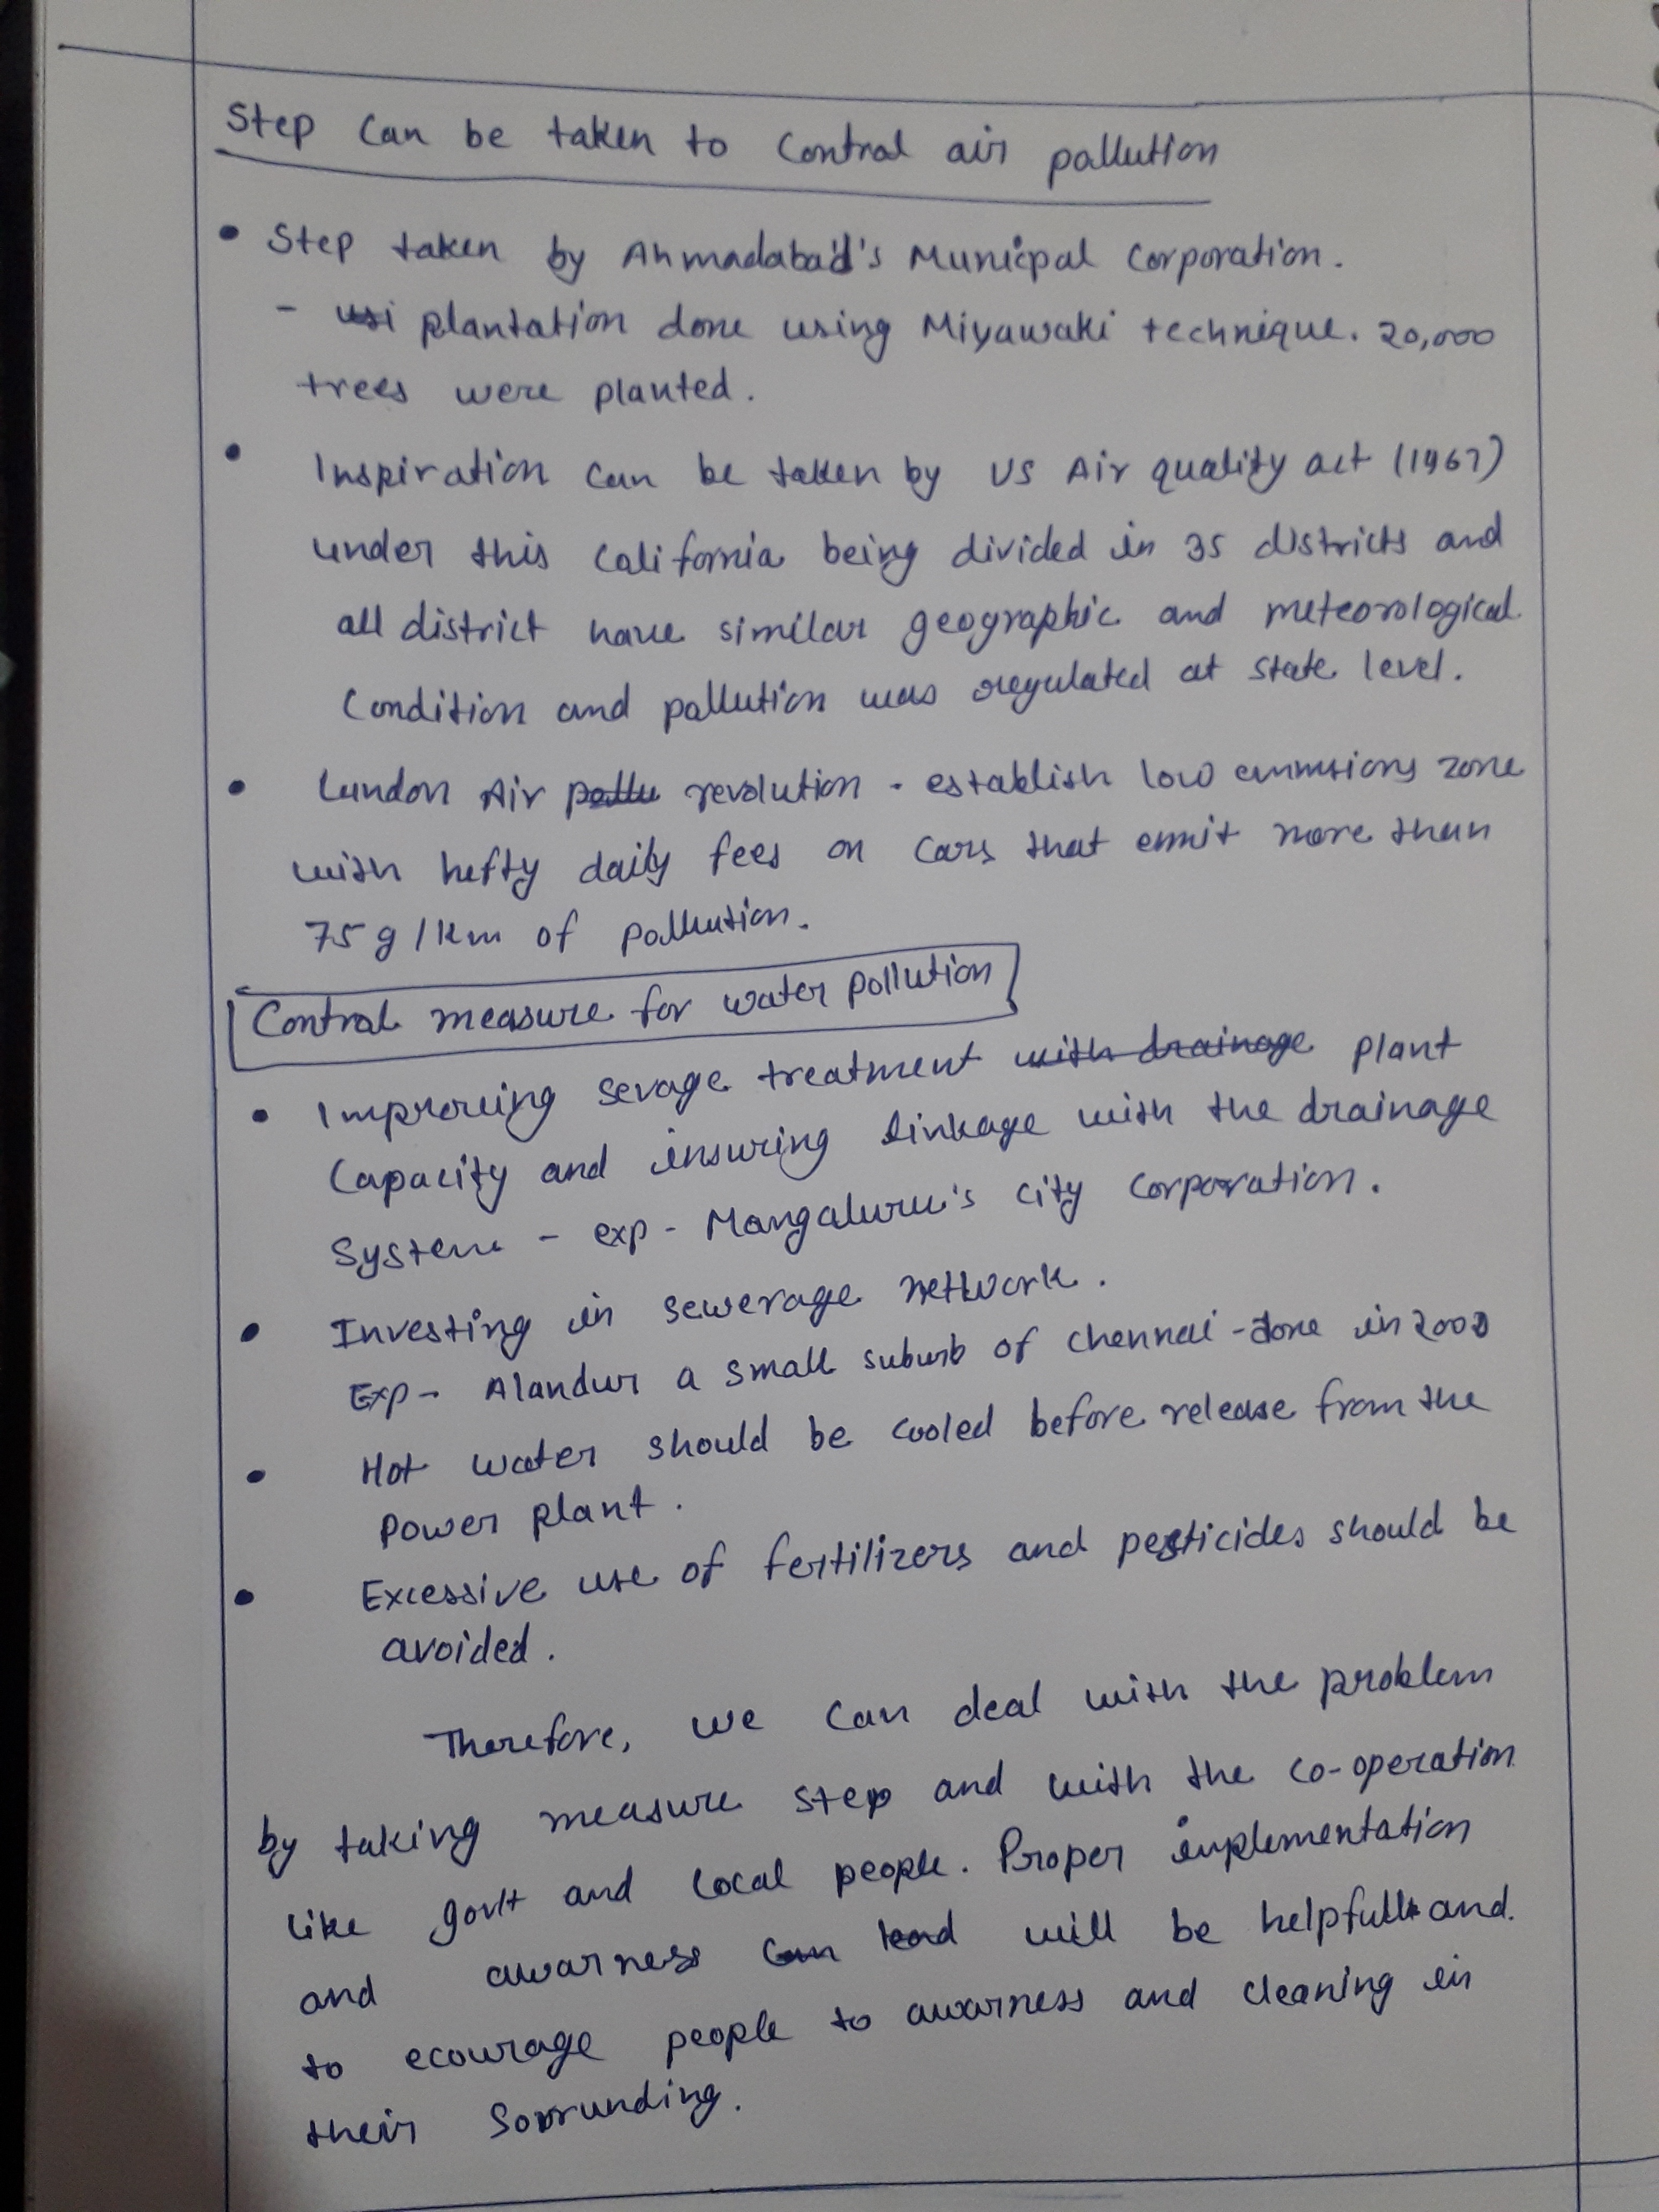 Step Can be taken to Control air pollution
• Step taken by Ahmadabad's Municpal Corporation.
- plantation done using Miyawaki technique. 20,000
trees were planted.
• Inspiration can be taken by US Air quality act (1967)
under this California being divided in 35 districts and
all district have similar geographic and meteorological
Condition and pollution was regulated at state level.
• London Air revolution - establish low emmisions zone
with hefty daily fees on cars that emmit more than
75 g/km of pollution.
Control measure for water pollution
• Improving sevage treatment with drainage plant
Capacity and insuring linkage with the drainage
System - exp - Mangaluru's city corporation.
• Investing in sewerage network.
Exp - Alandur a small suburb of chennai - done in 2000
• Hot water should be cooled before release from the
Power plant.
• Excessive use of fertilizers and pesticides should be
avoided.
Therefore, we can deal with the problem
by taking measure step and with the co-operation
like govt and local people. Proper implementation
and awarness can lead will be helpfull and
to ecourage people to awarness and cleaning in
their Sorrunding.